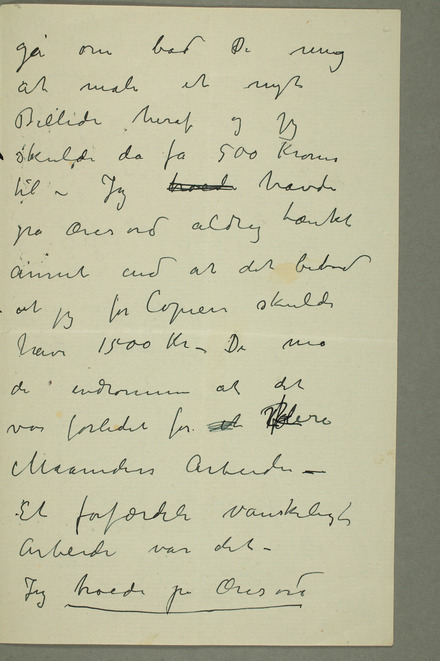 gå om bad De mig
at male et nyt
Billede heraf og jeg
skulde da få 500 Kroner
til – Jeg troede havde
på Æresord aldrig tænkt
annet end at det betød
at jeg for Copien skulde
have 1500 Kr – De må
da indrømme at det
var forlidet for et flere
Maaneders Arbeide –
Et forfærdeligt vanskeligt
Arbeide var det –
Jeg troede på Æresord